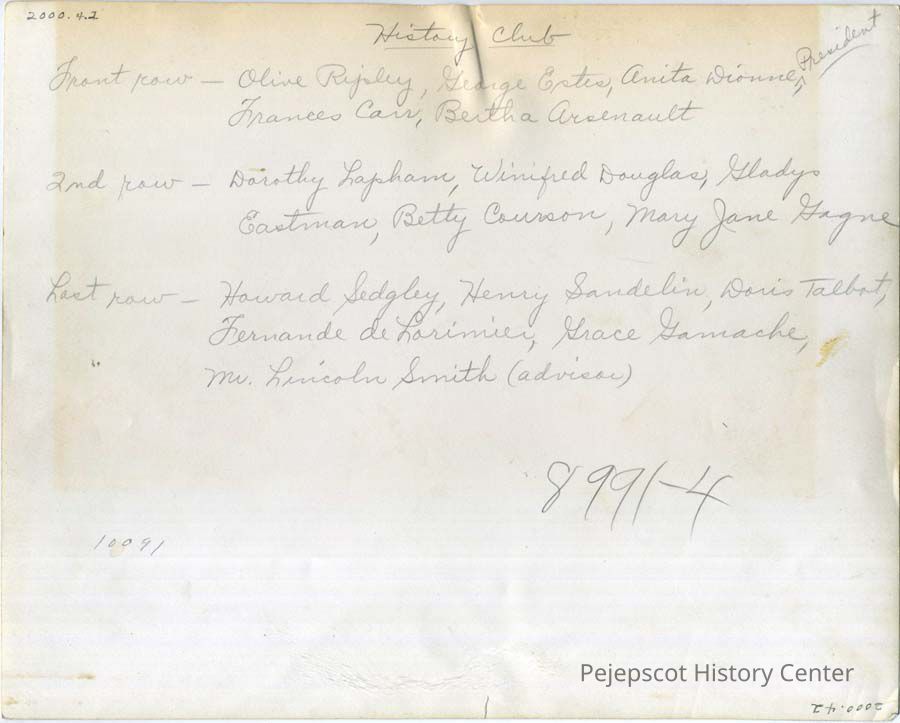 2000.42
History Club
President
Front row - Olive Ripley, George Estes, Anita Dionne,
Frances Carr, Bertha Arsenault
2nd row - Dorothy Lapham, Winifred Douglas, Gladys
Eastman, Betty Courson, Mary Jane Gagne
Last row - Howard Sedgley, Henry Sandelin, Doris Talbot,
Fernande de Lorimier, Grace Gamache,
Mr. Lincoln Smith (advisor)
8991-4
10091
Pejepscot History Center
2000.42